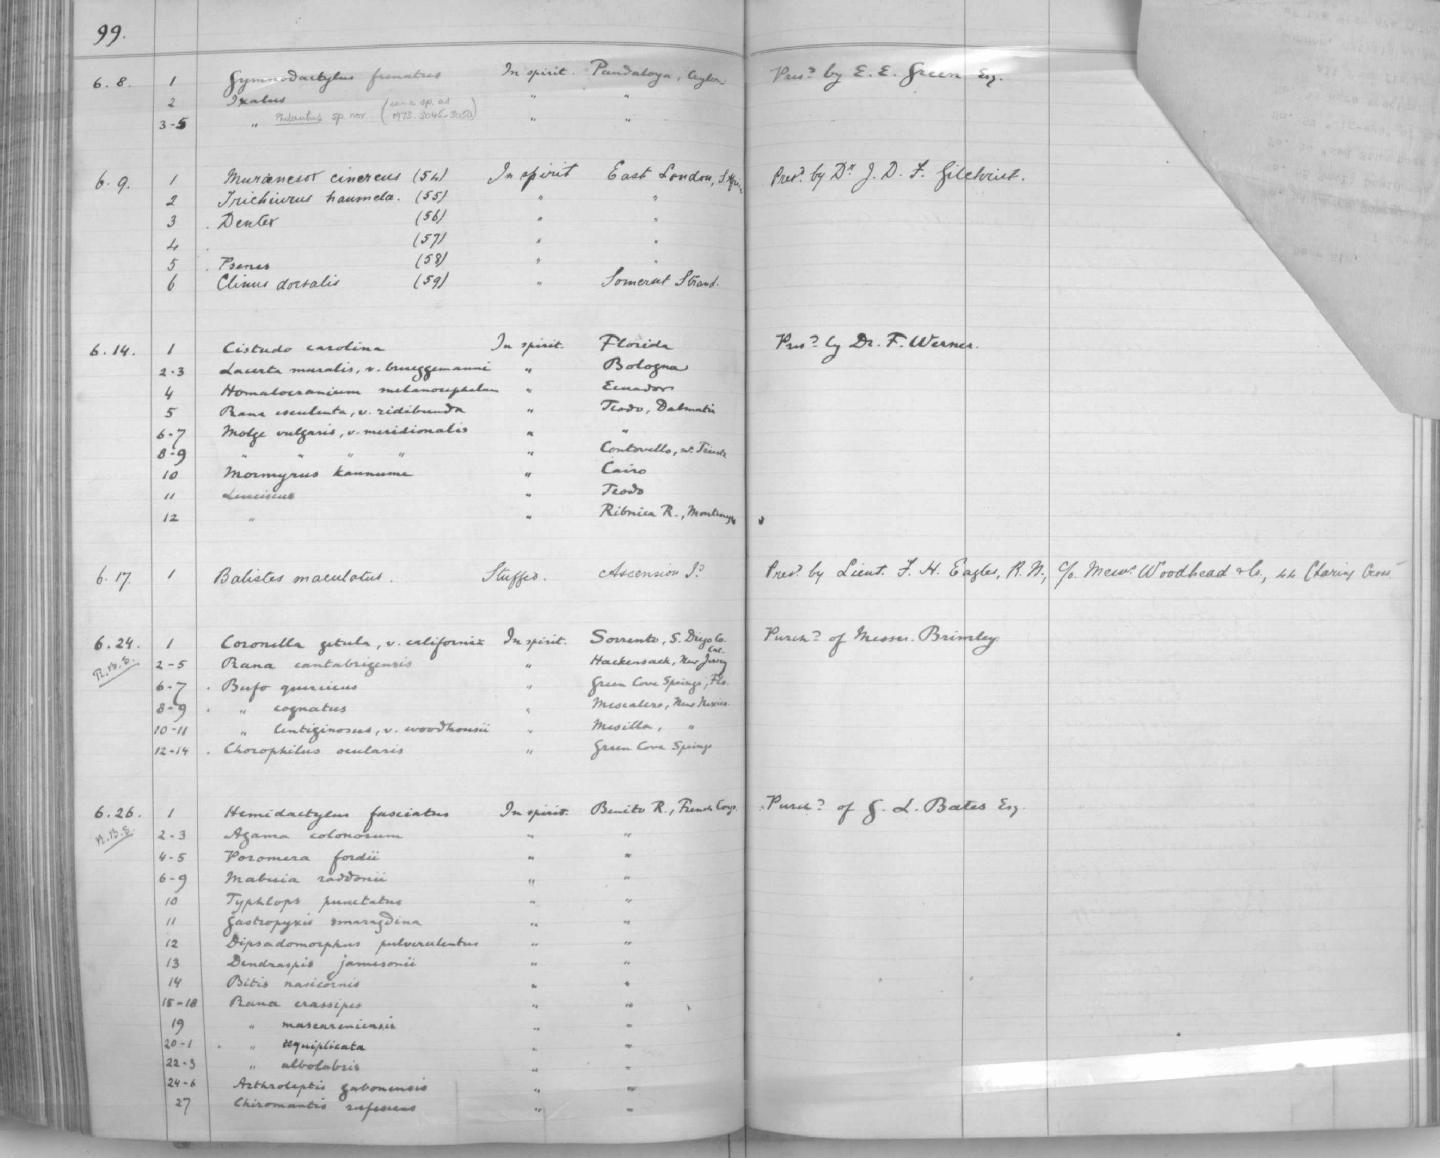 99.
6.8. 1 Gymnodactylus frenatus In spirit. Pundaloya, Ceylon Pres.d by E. E. Green Esq.
2 Ixalus " "
3-5 " Philautus sp. nov. ( sp. as 1973.3046-3050) " "
6.9. 1 Muraenesox cinereus (54) In spirit East London, S. Africa Pres.d by Dr J. D. F. Gilchrist.
2 Trichiurus haumela. (55) " "
3 . Dentex (56) " "
4 . (57) " "
5 . Psenes (58) " "
6 Clinus dorsalis (59) " Somerset Strand.
6.14. 1 Cistudo carolina In spirit. Florida Pres.d by Dr. F. Werner.
2-3 Lacerta muralis, v. brueggemanni " Bologna
4 Homalocranium melanocephalum " Ecuador
5 Rana esculenta, v. ridibunda " Teodo, Dalmatia
6-7 Molge vulgaris, v. meridionalis " "
8-9 " " " " " Contovello, nr. Trieste
10 Mormyrus kannume " Cairo
11 Leuciscus " Teodo
12 " " Ribnica R., Montenegro
6.17. 1 Balistes maculatus. Stuffed. Ascension Id. Pres.d by Lieut. F. H. Eagles, R.N., c/o Messrs. Woodhead & Co., 44 Charing Cross
6.24. 1 Coronella getula, v. californiæ In spirit. Sorrento, S. Diego Co. Cal. Purch.d of Messrs. Brimley
R.B.S. 2-5 Rana cantabrigensis " Hackensack, New Jersey
6-7 . Bufo quercicus " Green Cove Springs, Fla.
8-9 . " cognatus " Mescalero, New Mexico
10-11 " lentiginosus, v. woodhousii " Mesilla, "
12-14 . Chorophilus ocularis " Green Cove Springs
6.26. 1 Hemidactylus fasciatus In spirit. Benito R., French Congo. Purch.d of G. L. Bates Esq.
R.B.S. 2-3 Agama colonorum " "
4-5 Poromera fordii " "
6-9 Mabuia raddonii " "
10 Typhlops punctatus " "
11 Gastropyxis smaragdina " "
12 Dipsadomorphus pulverulentus " "
13 Dendraspis jamesonii " "
14 Bitis nasicornis " "
15-18 Rana crassipes " "
19 " mascareniensis " "
20-1 . " æquiplicata " "
22-3 " albolabris " "
24-6 Arthroleptis gabonensis " "
27 Chiromantis rufescens " "